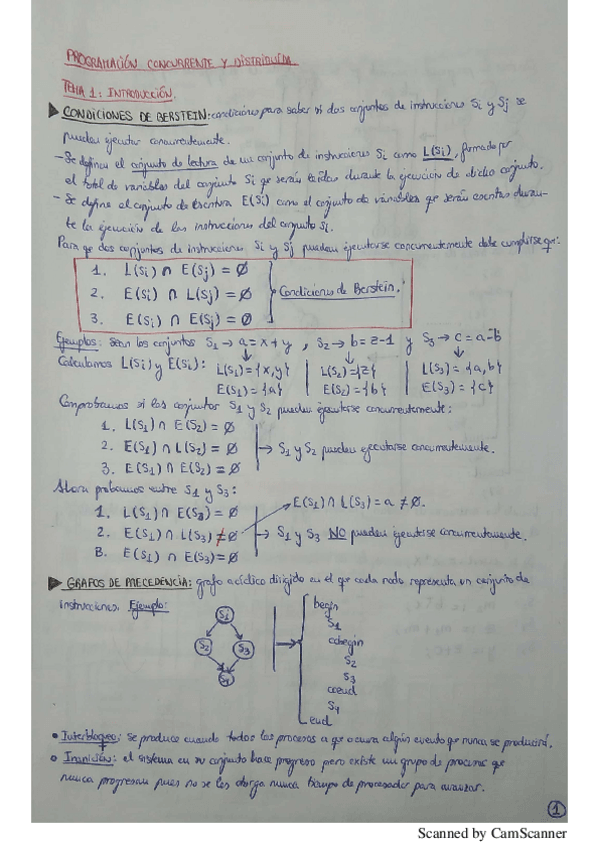 PROGRAMACIÓN CONCURRENTE Y DISTRIBUIDA
TEMA 1: INTRODUCCIÓN.
► CONDICIONES DE BERSTEIN: condiciones para saber si dos conjuntos de instrucciones Si y Sj se
pueden ejecutar concurrentemente.
- Se define el conjunto de lectura de un conjunto de instrucciones Si como L(Si), formado por
el total de variables del conjunto Si que serán leídas durante la ejecución de dicho conjunto.
- Se define el conjunto de escritura E(Si) como el conjunto de variables que serán escritas duran-
te la ejecución de las instrucciones del conjunto Si.
Para que dos conjuntos de instrucciones Si y Sj puedan ejecutarse concurrentemente debe cumplirse que:
1. L(Si) ∩ E(Sj) = ∅
2. E(Si) ∩ L(Sj) = ∅ Condiciones de Berstein.
3. E(Si) ∩ E(Sj) = ∅
Ejemplos: Sean los conjuntos S1 → a = x + y , S2 → b = z-1 y S3 → c = a-b
Calculamos L(Si) y E(Si): L(S1) = {x,y} | L(S2) = {z} | L(S3) = {a,b}
E(S1) = {a} | E(S2) = {b} | E(S3) = {c}
Comprobamos si los conjuntos S1 y S2 pueden ejecutarse concurrentemente:
1. L(S1) ∩ E(S2) = ∅
2. E(S1) ∩ L(S2) = ∅ → S1 y S2 pueden ejecutarse concurrentemente.
3. E(S1) ∩ E(S2) = ∅
Ahora probamos entre S1 y S3: E(S1) ∩ L(S3) = a ≠ ∅.
1. L(S1) ∩ E(S3) = ∅
2. E(S1) ∩ L(S3) ≠ ∅ → S1 y S3 NO pueden ejecutarse concurrentemente.
3. E(S1) ∩ E(S3) = ∅
► GRAFOS DE PRECEDENCIA: grafo acíclico dirigido en el que cada nodo representa un conjunto de
instrucciones. Ejemplo:
S1
S2 S3
S4
begin
S1
cobegin
S2
S3
coend
S4
end
• Interbloqueo: se produce cuando todos los procesos a que ocurra algún evento que nunca se producirá.
• Inanición: el sistema en su conjunto hace progreso pero existe un grupo de procesos que
nunca progresan pues no se les otorga nunca tiempo de procesador para avanzar.
1
Scanned by CamScanner